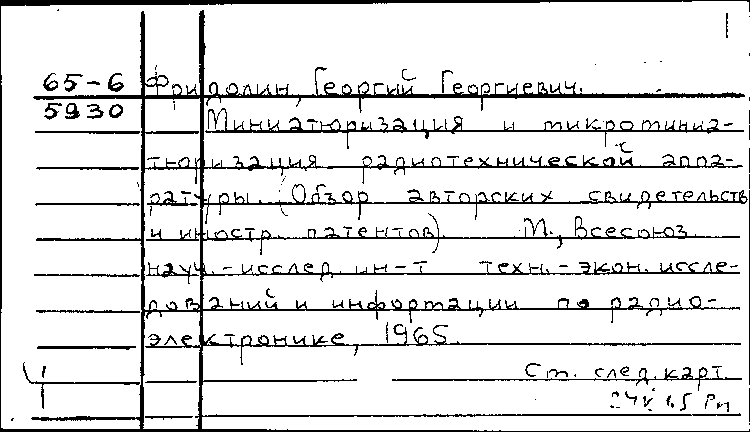 65-6 Фридолин, Георгий Георгиевич.
5930
Миниатюризация и микроминиа-
тюризация радиотехнической аппа-
ратуры. (Обзор авторских свидетельств
и иностр. патентов). М., Всесоюз.
науч.-исслед. ин-т техн.-экон. иссле-
дований и информации по радио-
электронике, 1965.
См. след. карт.